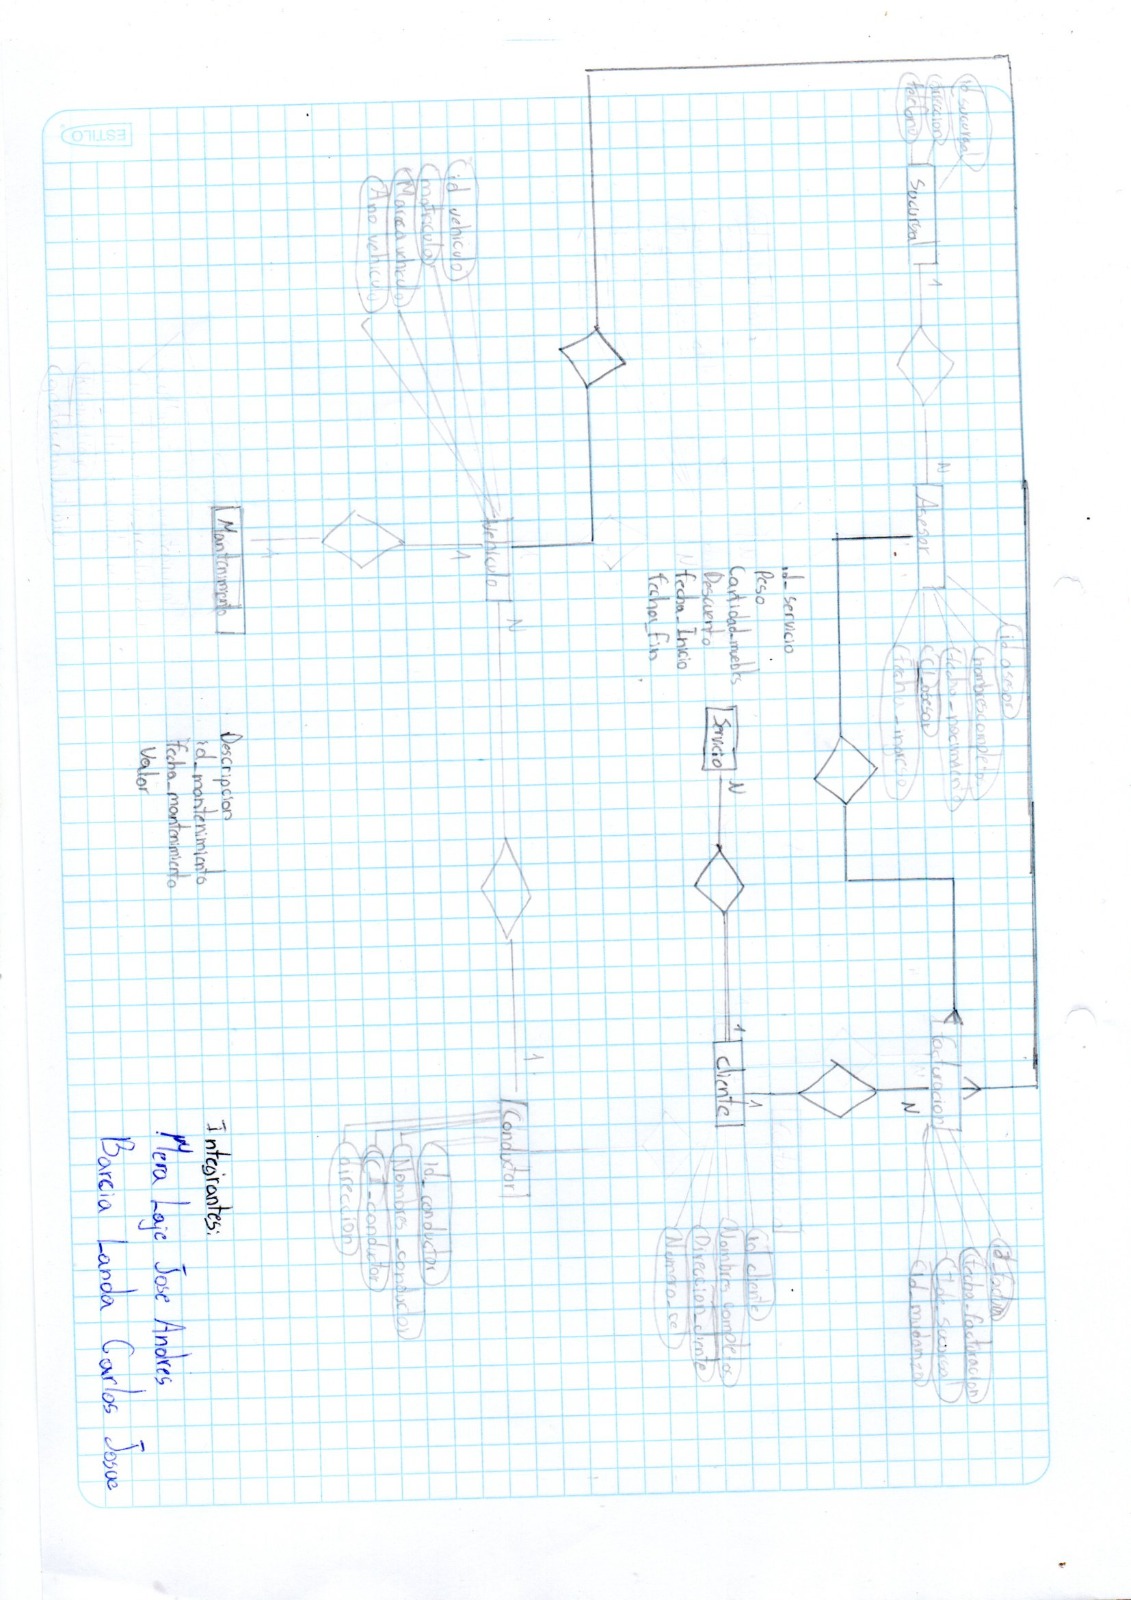 id_sucursal
direccion
telefono
Sucursal
1
N
Asesor
id_asesor
nombrescompletos
fecha_nacimiento
CI_asesor
fecha_ingreso
facturacion
N
id_factura
fecha_facturacion
Id_sucursal
id_mudanza
id_servicio
Peso
Cantidad_muebles
Descuento
fecha_Inicio
fecha_Fin
Servicio
N
1
1
cliente
id_cliente
Nombres_completos
Direccion_cliente
Numero_cel
vehiculo
N
1
1
Conductor
id_vehiculo
matricula
Marca vehiculo
Año vehiculo
id_conductor
Nombres_conductor
CI_conductor
direccion
1
Mantenimiento
Descripcion
id_mantenimiento
fecha_mantenimiento
Valor
Integrantes:
Mera Laje Jose Andres
Barcia Landa Carlos Josue
ESTILO